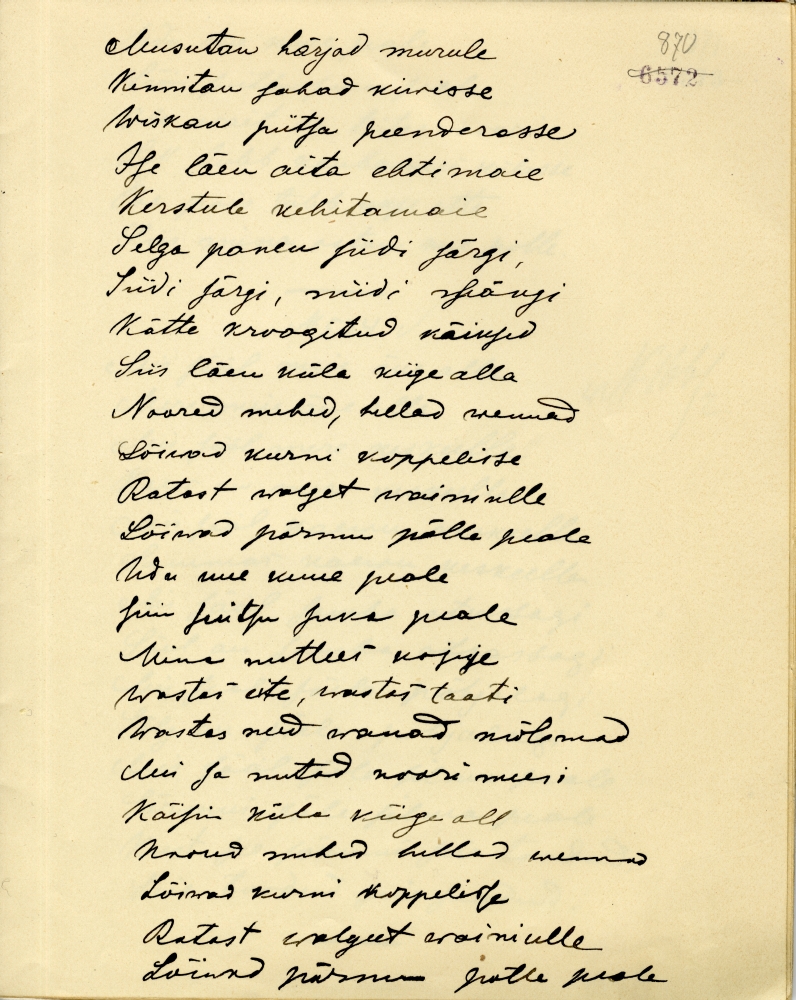 870
6572
Musutan härjad murule
Kinnitan sahad kiwisse
Wiskan piitsa peenderasse
Ise läen aita ehtimaie
Kerstule kehitamaie
Selga panen siidi särgi,
Siidi särgi, niidi
Kätte kroogitud käiksed
Siis läen küla kiige alla
Noored mehed, hellad wennad
Löiwad kurni koppelisse
Ratast walget wainiulle
Löiwad pärmu pölle peale
Udu uue kuue peale
siin suitsu suka peale
Mina nuttes kojuje
wastas eite, wastas taati
Wastas need wanad mölemad
Mis sa nutad noori
Käisin küla kiige all
Noored mehed hellad wennad
Löiwad kurni koppelisse
Ratast walget wainiulle
Löiwad pärmu polle peale